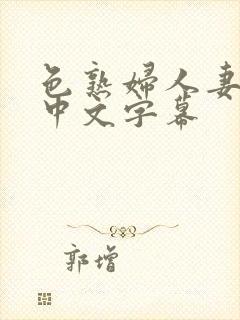 色熟婦人妻
中文字幕
郭增